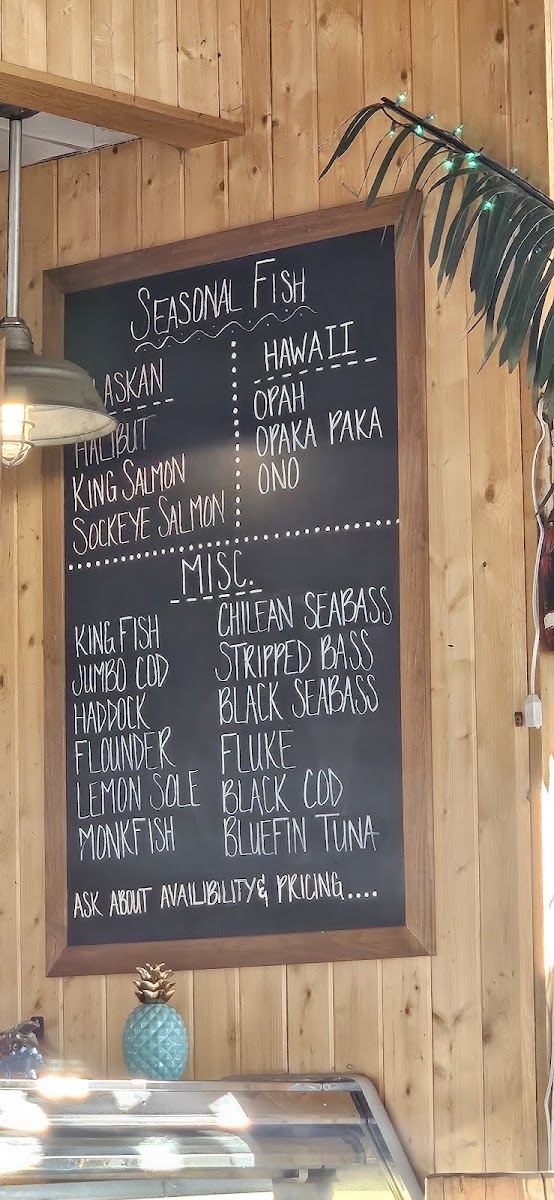 SEASONAL FISH
LASKAN
HALIBUT
KING SALMON
SOCKEYE SALMON
HAWAII
OPAH
OPAKA PAKA
ONO
MISC.
KING FISH
JUMBO COD
HADDOCK
FLOUNDER
LEMON SOLE
MONKFISH
CHILEAN SEABASS
STRIPPED BASS
BLACK SEABASS
FLUKE
BLACK COD
BLUEFIN TUNA
ASK ABOUT AVAILIBILITY & PRICING....